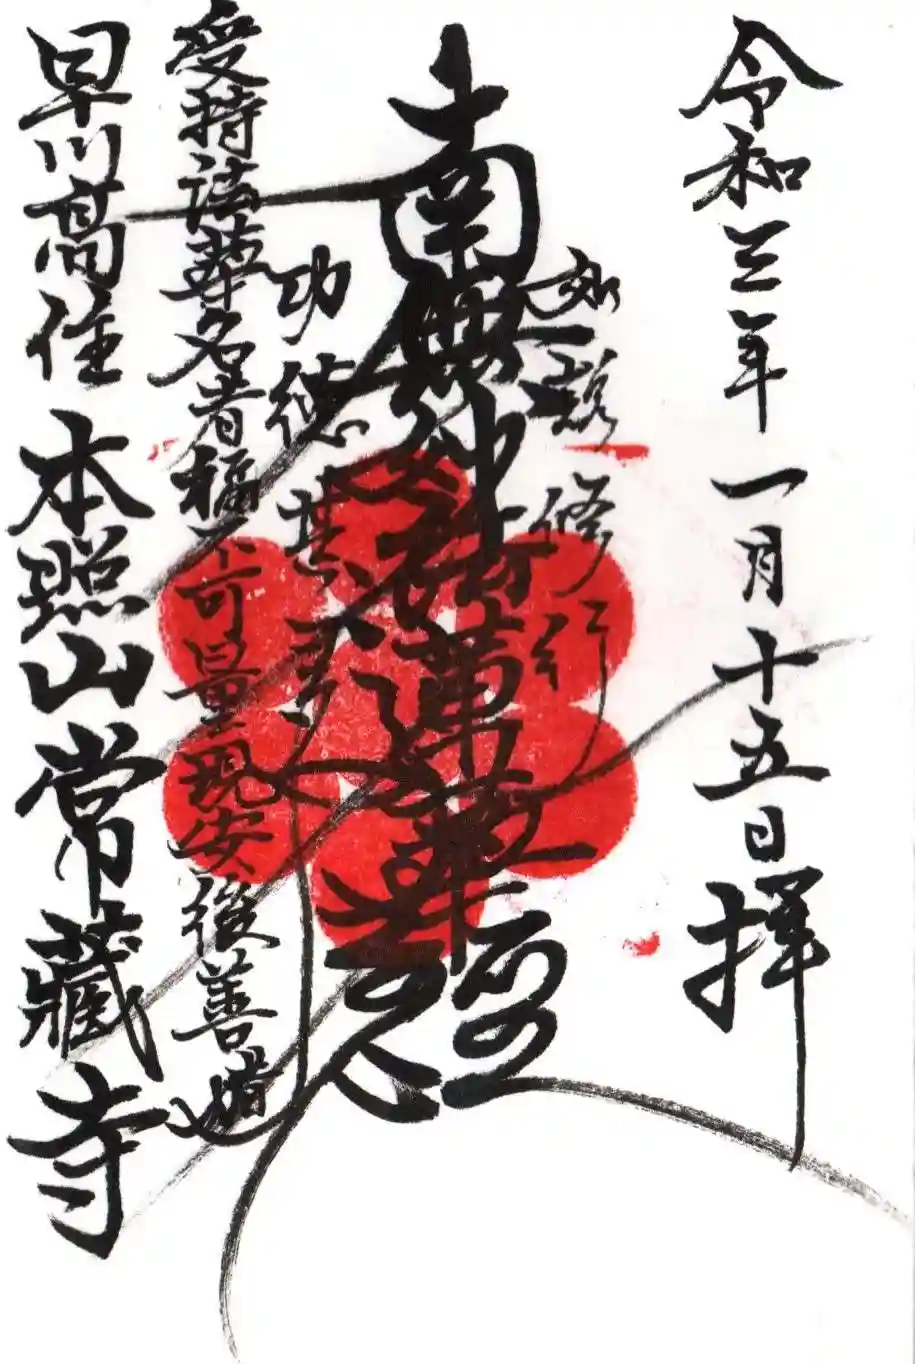 令和三年一月十五日拝
如説修行
南無妙法蓮華經
功徳甚多
受持法華名者福不可量現安後善
早川髙住 本照山常藏寺